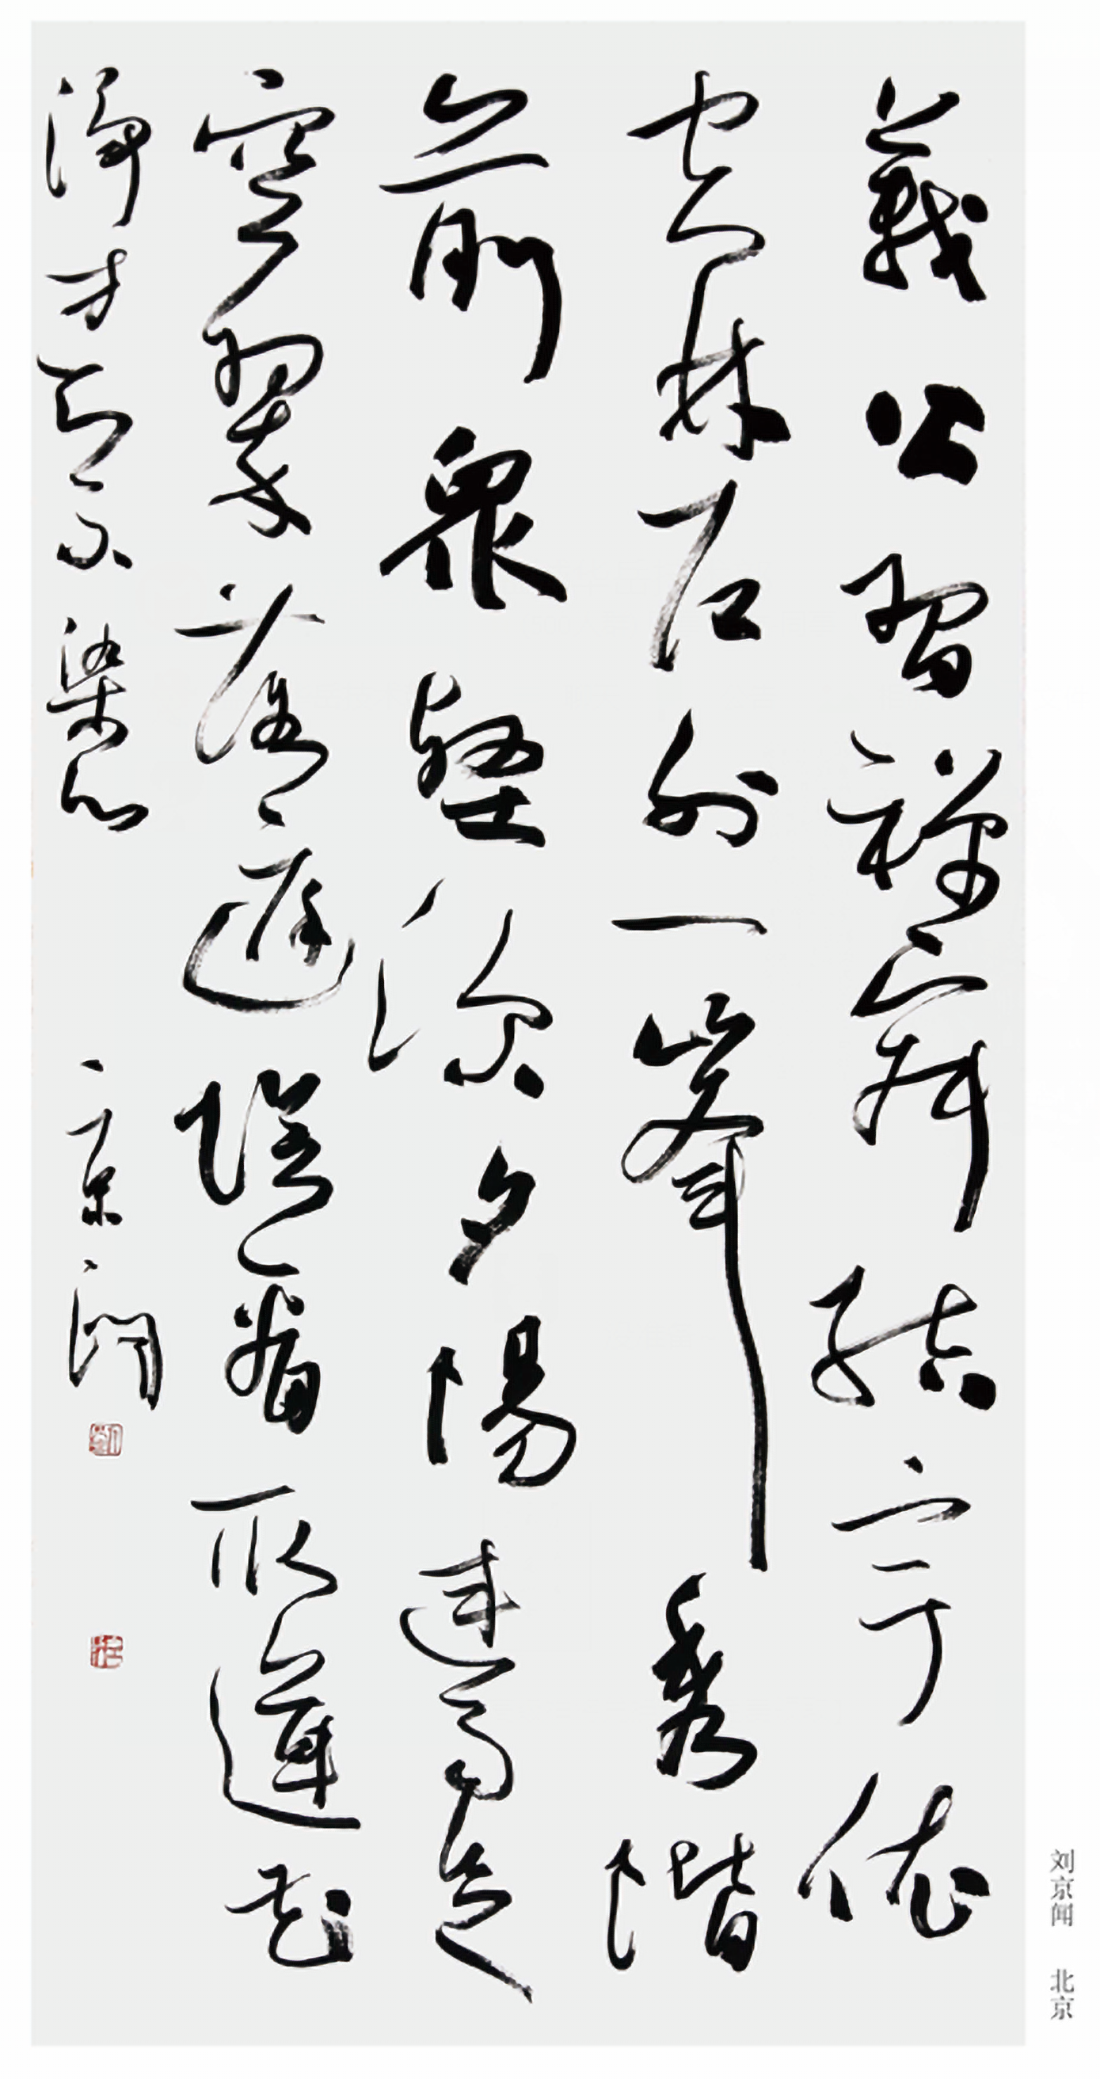 義公習禪寂結宇依
空林户外一峯秀階
前眾壑深夕陽連雨足
空翠落庭陰看取蓮花
淨方知不染心 京聞
刘京闻 北京